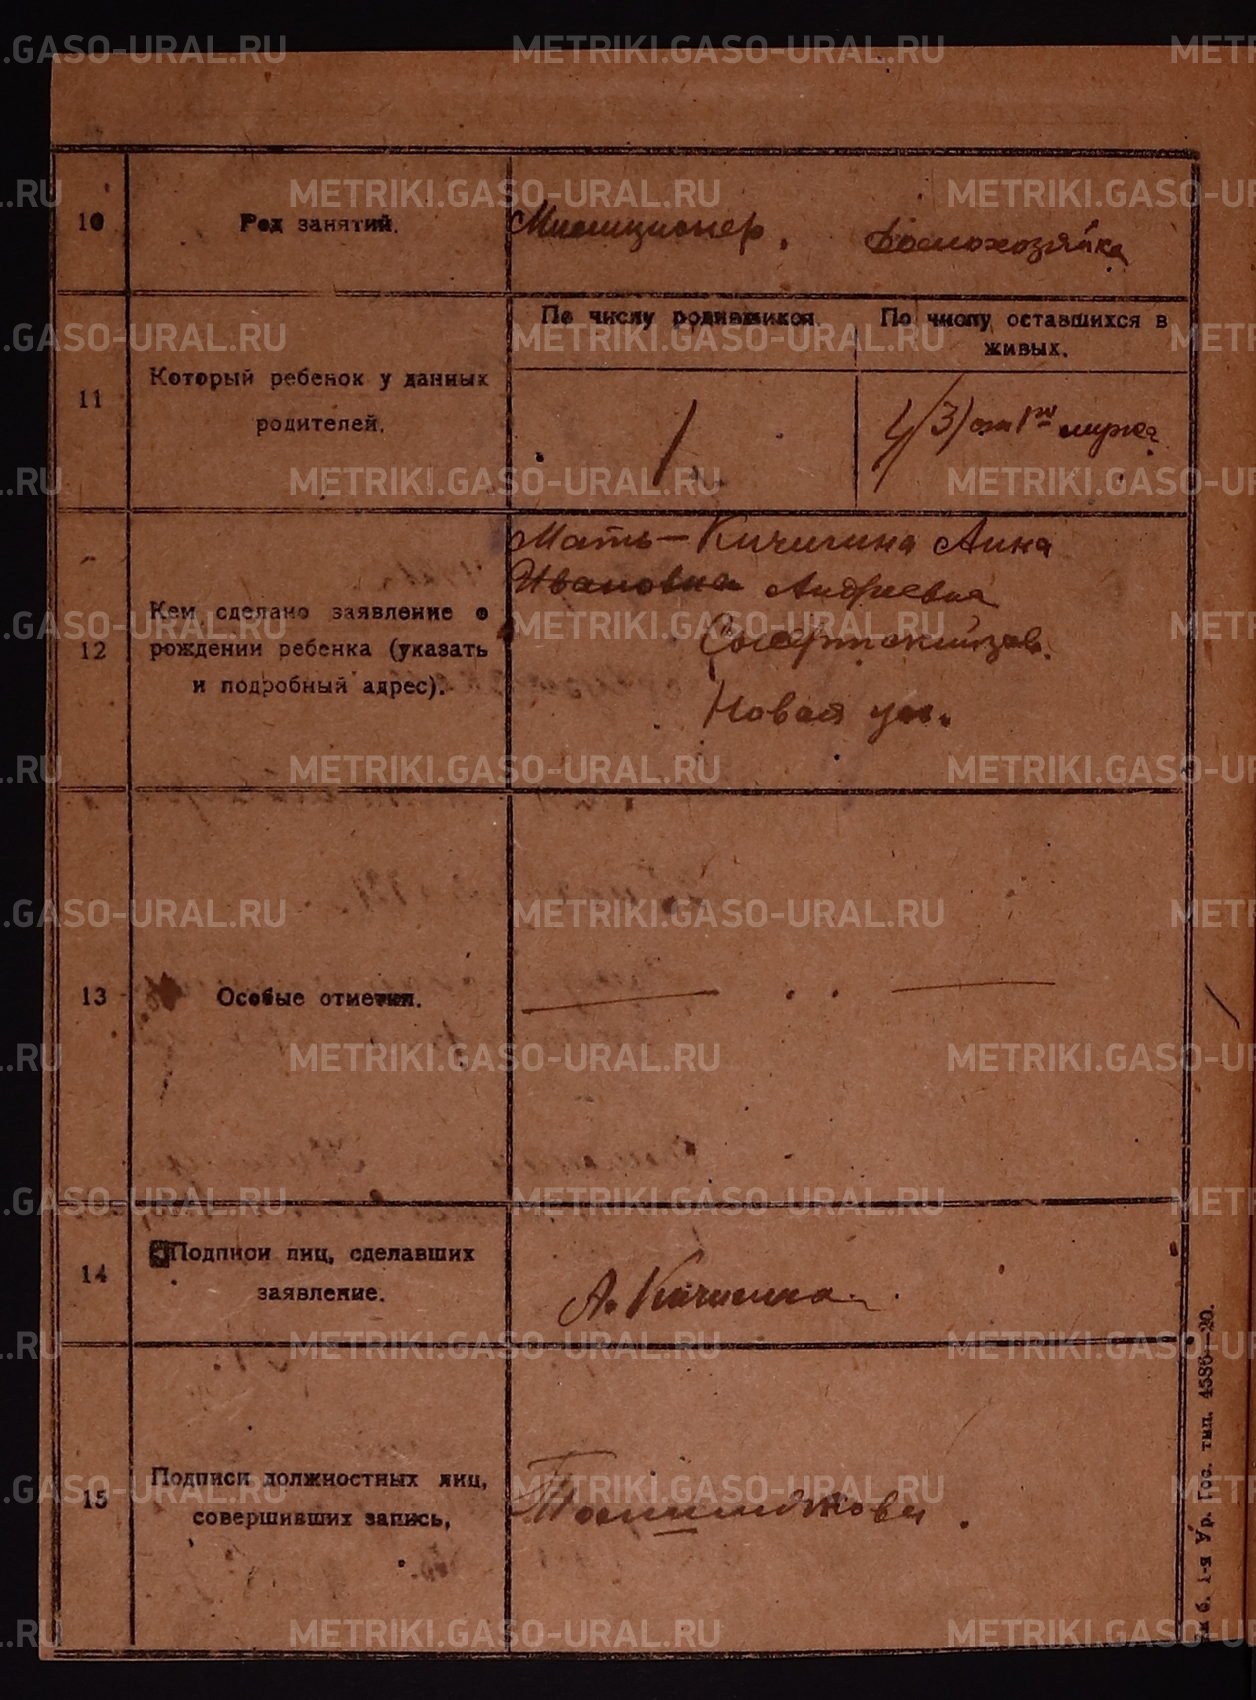 10
Род занятий.
Милиционер.
Домохозяйка
11
Который ребенок у данных
родителей.
По числу родившихся
По числу оставшихся в
живых.
1
4 (3) от 1го мужа
12
Кем сделано заявление о
рождении ребенка (указать
и подробный адрес).
Мать — Кичигина Анна
Ивановна Андреевна
Сысертский зав.
Новая ул.
13
Особые отметки.
14
Подписи лиц, сделавших
заявление.
А. Кичигина
15
Подписи должностных лиц,
совершивших запись,
б. 1-я Ур. Гос. тип. 4586—20.
METRIKI.GASO-URAL.RU